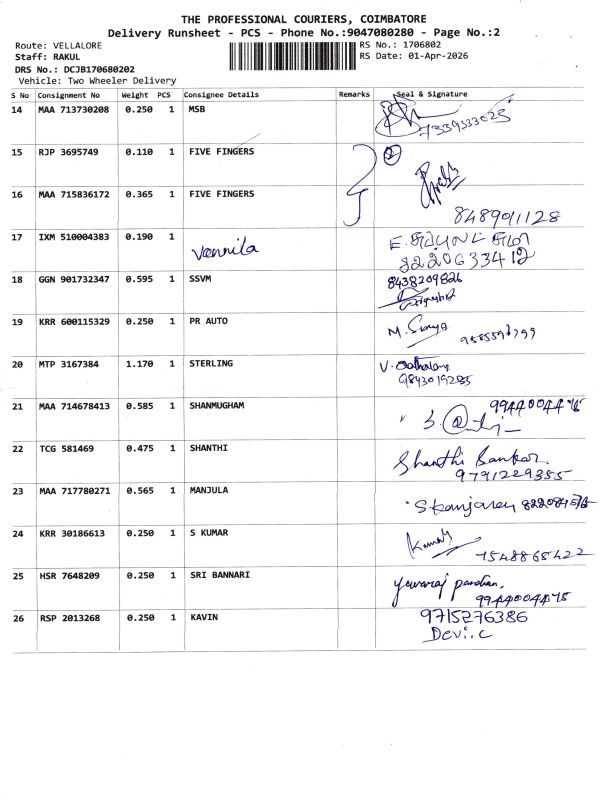 THE PROFESSIONAL COURIERS, COIMBATORE
Delivery Runsheet - PCS - Phone No.:9047080280 - Page No.:2
Route: VELLALORE
Staff: RAKUL
DRS No.: DCJB170680202
Vehicle: Two Wheeler Delivery
RS No.: 1706802
RS Date: 01-Apr-2026
S No Consignment No Weight PCS Consignee Details Remarks Seal & Signature
14 MAA 713730208 0.250 1 MSB
15 RJP 3695749 0.110 1 FIVE FINGERS 2
16 MAA 715836172 0.365 1 FIVE FINGERS
8489011128
17 IXM 510004383 0.190 1 Vennila
8220633412
18 GGN 901732347 0.595 1 SSVM 8438209826
19 KRR 600115329 0.250 1 PR AUTO M. Surya
20 MTP 3167384 1.170 1 STERLING V.
9843019285
21 MAA 714678413 0.585 1 SHANMUGHAM
22 TCG 581469 0.475 1 SHANTHI Shanthi Bankar
9791229355
23 MAA 717780271 0.565 1 MANJULA
24 KRR 30186613 0.250 1 S KUMAR Kumar 7548865422
25 HSR 7648209 0.250 1 SRI BANNARI yuvaraj pandian.
9944004475
26 RSP 2013268 0.250 1 KAVIN 9715276386
Devi.c